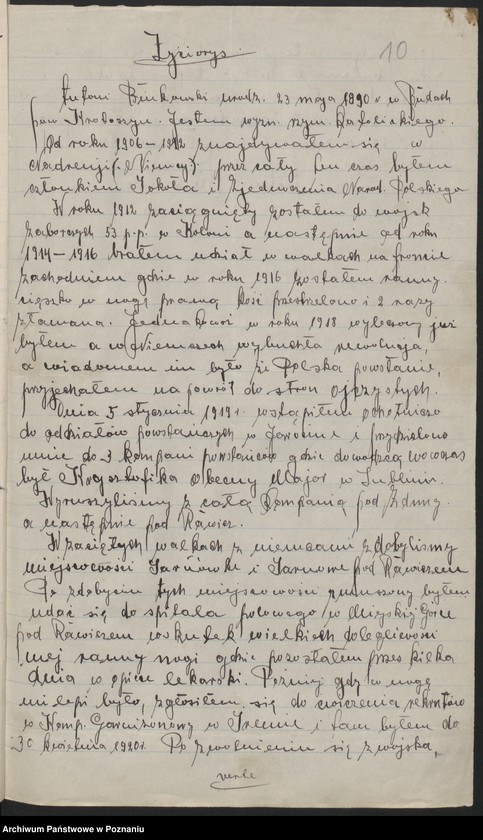 Życiorys.
10
Antoni Binkowski urodz. 23 maja 1890 r. w Budach
pow Krotoszyn. Jestem wyzn. rzym. katolickiego.
Od roku 1906-1912 znajdywałem się w
Nadrenji (Niemcy). przez cały ten czas byłem
członkiem Sokoła i Zjednoczenia Narod. Polskiego
W roku 1912 zaciągnięty zostałem do wojsk
zaborczych 53 p.p. w Kolonii a następnie od roku
1914-1916 brałem udział w walkach na froncie
zachodniem gdzie w roku 1916 zostałem ranny.
ciężko w nogę prawą kość przestrzelono i 2 razy
złamana. Jednakowoż w roku 1918 wyleczony już
byłem a w Niemczech wybuchła rewolucja,
a wiadomem im było że Polska powstanie,
przyjechałem na powrót do stron ojczystych.
Dnia 5 stycznia 1919 r. wstąpiłem ochotniczo
do oddziałów powstańczych w Jarocinie i przydzielono
mnie do 3 kompani powstańczej gdzie dowódzcą wówczas
był obecny Major w Lublinie.
Wyruszyliśmy z całą Kompanią pod Zduny.
a następnie pod Rawicz.
W zaciętych walkach z niemcami zdobyliśmy
miejscowości Sarnówki i Sarnowę pod Rawiczem
Po zdobyciu tych miejscowości zmuszony byłem
udać się do szpitala polowego w Miejskiej Górce
pod Rawiczem wskutek wielkich dolegliwości
mej ranny nogi gdzie pozostałem przez kilka
dnia w opiece lekarski. Pózniej gdy w nogę
mi lepi było, zgłosiłem się do ćwiczenia rekrutów
w Komp. Garnizonowy w Śremie i tam byłem do
30 kwietnia 1920 r. Po zwolnieniu się z wojska,
verte
Archiwum Państwowe w Poznaniu